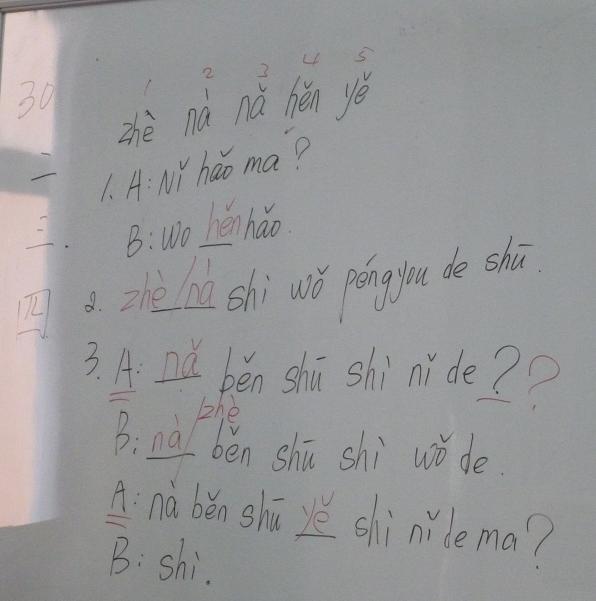 30
1 2 3 4 5
zhè nà nǎ hěn yě
二
1. A: Nǐ hǎo ma?
三. B: Wo hěn hǎo.
四 2. zhè/nà shì wǒ péngyou de shū.
3. A: nǎ běn shū shì nǐ de ??
B: nà/zhè běn shū shì wǒ de.
A: nà běn shū yě shì nǐ de ma?
B: shì.